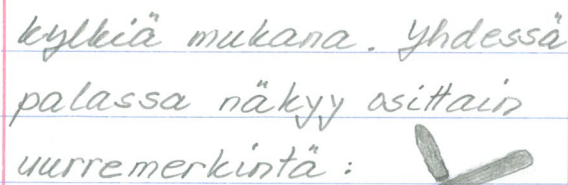 kylkiä mukana. Yhdessä
palassa näkyy osittain
uurremerkintä: